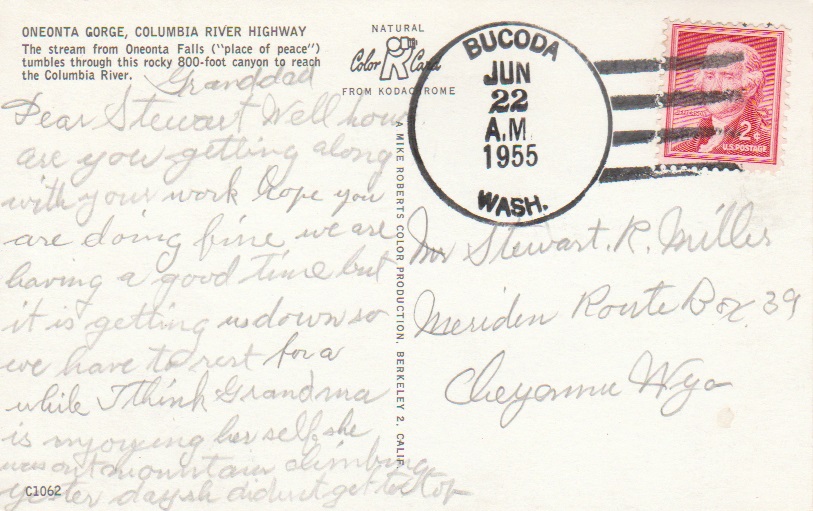 ONEONTA GORGE, COLUMBIA RIVER HIGHWAY
The stream from Oneonta Falls ("place of peace")
tumbles through this rocky 800-foot canyon to reach
the Columbia River.
Granddad
Dear Stewart Well how
are you getting along
with your work hope you
are doing fine we are
having a good time but
it is getting us down so
we have to rest for a
while I think Grandma
is injoying her self. she
was out mountain climbing
yester day sh didnt get to top
C1062
NATURAL
Color R Card
FROM KODACHROME
A MIKE ROBERTS COLOR PRODUCTION. BERKELEY 2, CALIF.
BUCODA
JUN
22
A.M.
1955
WASH.
JEFFERSON
2¢
U.S. POSTAGE
Mr Stewart. R. Miller
Meriden Route Box. 39
Cheyenne Wyo